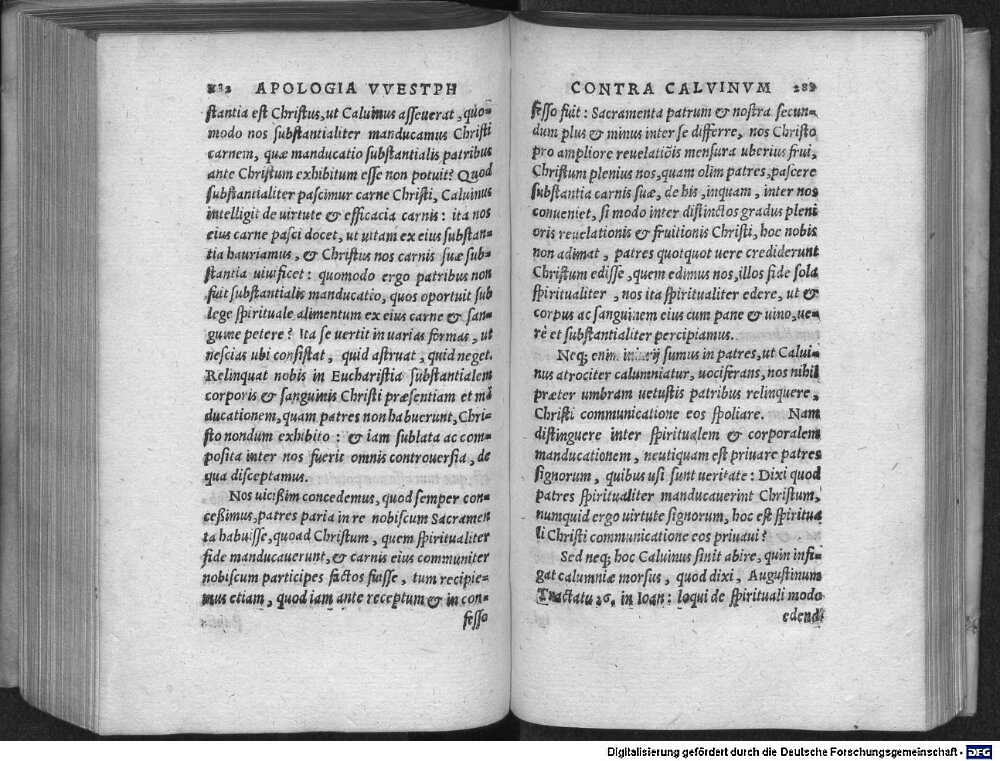 282 APOLOGIA VVESTPH
stantia est Christus, ut Caluinus asseuerat, quo-
modo nos substantialiter manducamus Christi
carnem, quæ manducatio substantialis patribus
ante Christum exhibitum esse non potuit? Quod
substantialiter pascimur carne Christi, Caluinus
intelligit de uirtute & efficacia carnis: ita nos
eius carne pasci docet, ut uitam ex eius substan-
tia hauriamus, & Christus nos carnis suæ sub-
stantia uiuificet: quomodo ergo patribus non
fuit substantialis manducatio, quos oportuit sub
lege spirituale alimentum ex eius carne & san-
guine petere? Ita se uertit in uarias formas, ut
nescias ubi consistat, quid astruat, quid neget.
Relinquat nobis in Eucharistia substantialem
corporis & sanguinis Christi præsentiam et mā
ducationem, quam patres non habuerunt, Chri-
sto nondum exhibito: & iam sublata ac com-
posita inter nos fuerit omnis controuersia, de
qua disceptamus.
Nos uicißim concedemus, quod semper con-
ceßimus, patres paria in re nobiscum Sacramen
ta habuisse, quoad Christum, quem spiritualiter
fide manducauerunt, & carnis eius communiter
nobiscum participes factos fuisse, tum recipie-
mus etiam, quod iam ante receptum & in con-
fesso
CONTRA CALVINVM
fesso fuit: Sacramenta patrum & nostra secun-
dum plus & minus inter se differre, nos Christo
pro ampliore reuelatiõis mensura uberius frui,
Christum plenius nos, quam olim patres, pascere
substantia carnis suæ, de his, inquam, inter nos
conueniet, si modo inter distinctos gradus pleni
oris reuelationis & fruitionis Christi, hoc nobis
non adimat, patres quotquot uere crediderunt
Christum edisse, quem edimus nos, illos fide sola
spiritualiter, nos ita spiritualiter edere, ut &
corpus ac sanguinem eius cum pane & uino, ue-
rè et substantialiter percipiamus.
Neq; enim iniurij sumus in patres, ut Calui-
nus atrociter calumniatur, uociferans, nos nihil
præter umbram uetustis patribus relinquere,
Christi communicatione eos spoliare. Nam
distinguere inter spiritualem & corporalem
manducationem, neutiquam est priuare patres
signorum, quibus usi sunt ueritate: Dixi quod
patres spiritualiter manducauerint Christum,
numquid ergo uirtute signorum, hoc est spiritua
li Christi communicatione eos priuaui?
Sed neq; hoc Caluinus sinit abire, quin infi-
gat calumniæ morsus, quod dixi, Augustinum
Tractatu 26. in Ioan: loqui de spirituali modo
edendi
Digitalisierung gefördert durch die Deutsche Forschungsgemeinschaft - DFG